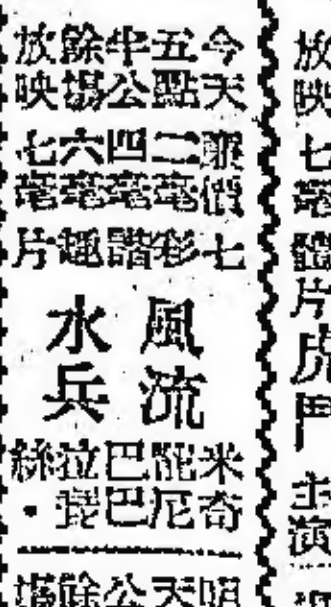 今天五點半公餘場放映
票價二毫四毫六毫七毫
七彩諧趣片
風流
水兵
米奇尼巴巴拉絲
明天公餘場
放映
七毫
片
虎鬥
主演